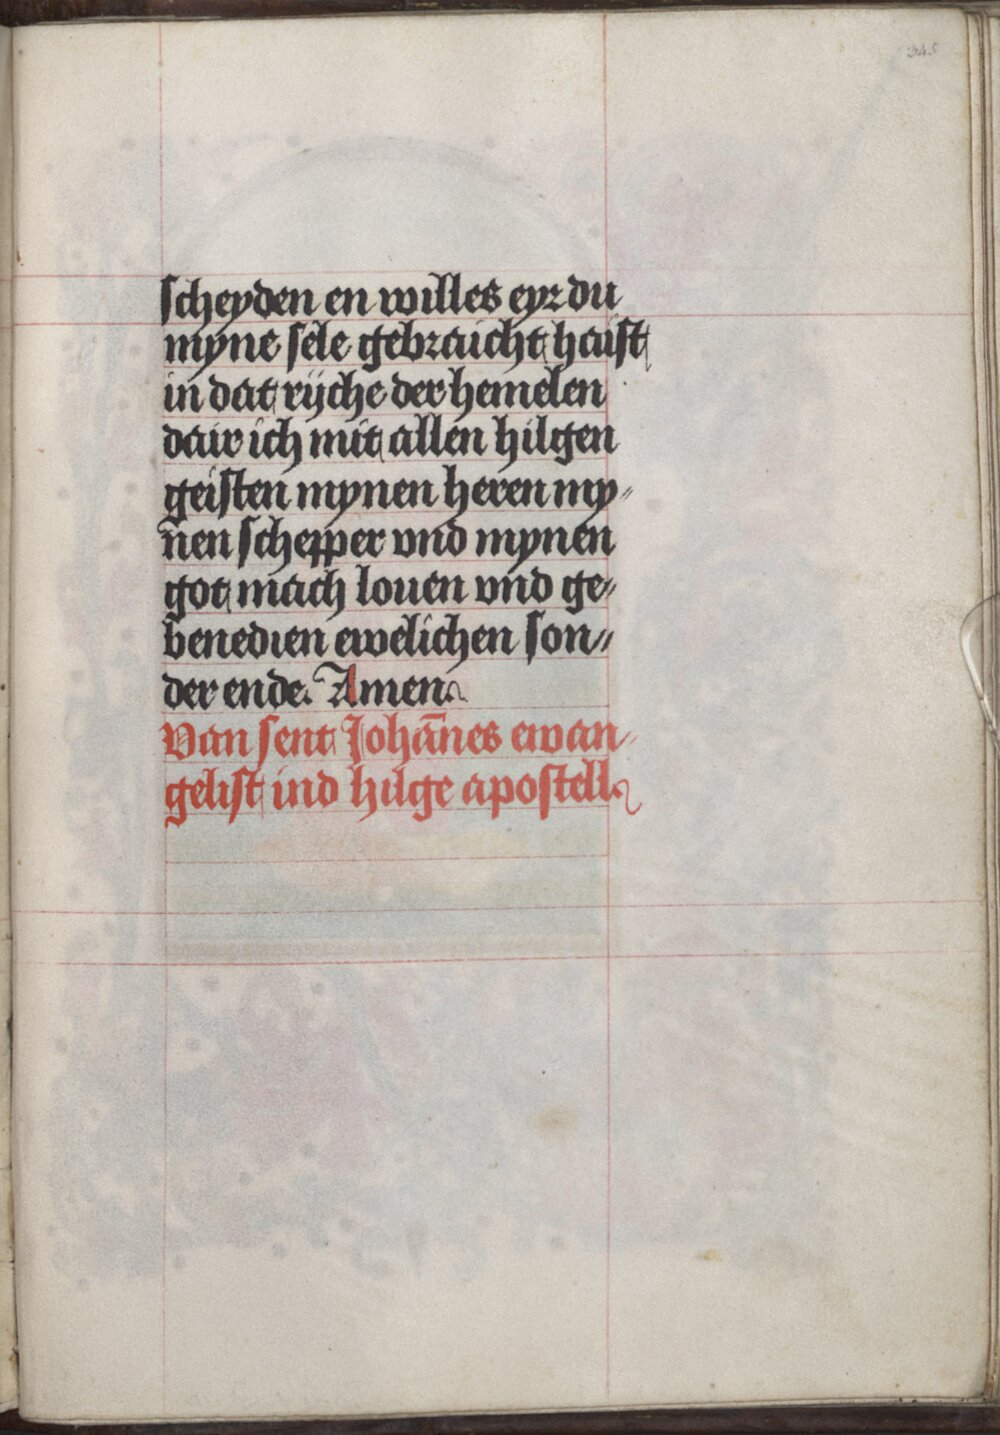 345
scheyden en willes eyr du
myne sele gebraicht haist
in dat rijche der hemelen
dair ich mit allen hilgen
geisten mynen heren my⸗
nen schepper vnd mynen
got mach louen vnd ge⸗
benedien ewelichen son⸗
der ende. Amen.
Van sent Johānes ewan⸗
gelist ind hilge apostell